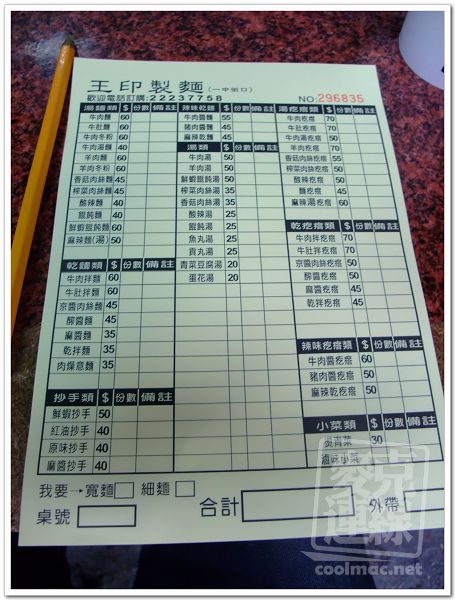 王印製麵(一中街口)
歡迎電話訂購:22237758 NO:296835
湯麵類 $ 份數 備註
牛肉麵 60
牛肚麵 60
牛肉冬粉 60
牛肉湯麵 40
羊肉麵 60
羊肉冬粉 60
香菇肉絲麵 45
榨菜肉絲麵 45
酸辣麵 40
餛飩麵 40
鮮蝦餛飩麵 60
麻辣麵(湯) 50
乾麵類 $ 份數 備註
牛肉拌麵 60
牛肚拌麵 60
京醬肉絲麵 45
醡醬麵 35
麻醬麵 35
乾拌麵 35
肉燥意麵 35
抄手類 $ 份數 備註
鮮蝦抄手 50
紅油抄手 40
原味抄手 40
麻醬抄手 40
辣味乾麵 $ 份數 備註
牛肉醬麵 55
豬肉醬麵 45
麻辣乾麵 45
湯類 $ 份數 備註
牛肉湯 50
羊肉湯 50
鮮蝦餛飩湯 50
榨菜肉絲湯 35
香菇肉絲湯 35
酸辣湯 25
餛飩湯 25
魚丸湯 25
貢丸湯 25
青菜豆腐湯 20
蛋花湯 20
湯疙瘩類 $ 份數 備註
牛肉疙瘩 70
牛肚疙瘩 70
牛肉湯疙瘩 50
羊肉疙瘩 70
香菇肉絲疙瘩 55
榨菜肉絲疙瘩 55
酸辣疙瘩 50
麵疙瘩 45
麻辣湯疙瘩 60
乾疙瘩類 $ 份數 備註
牛肉拌疙瘩 70
牛肚拌疙瘩 70
京醬肉絲疙瘩 50
醡醬疙瘩 50
麻醬疙瘩 45
乾拌疙瘩 45
辣味疙瘩類 $ 份數 備註
牛肉醬疙瘩 60
豬肉醬疙瘩 50
麻辣乾疙瘩 50
小菜類 $ 份數 備註
燙青菜 30
滷味小菜
我要→寬麵 細麵
桌號 合計 外帶
coolmac.net